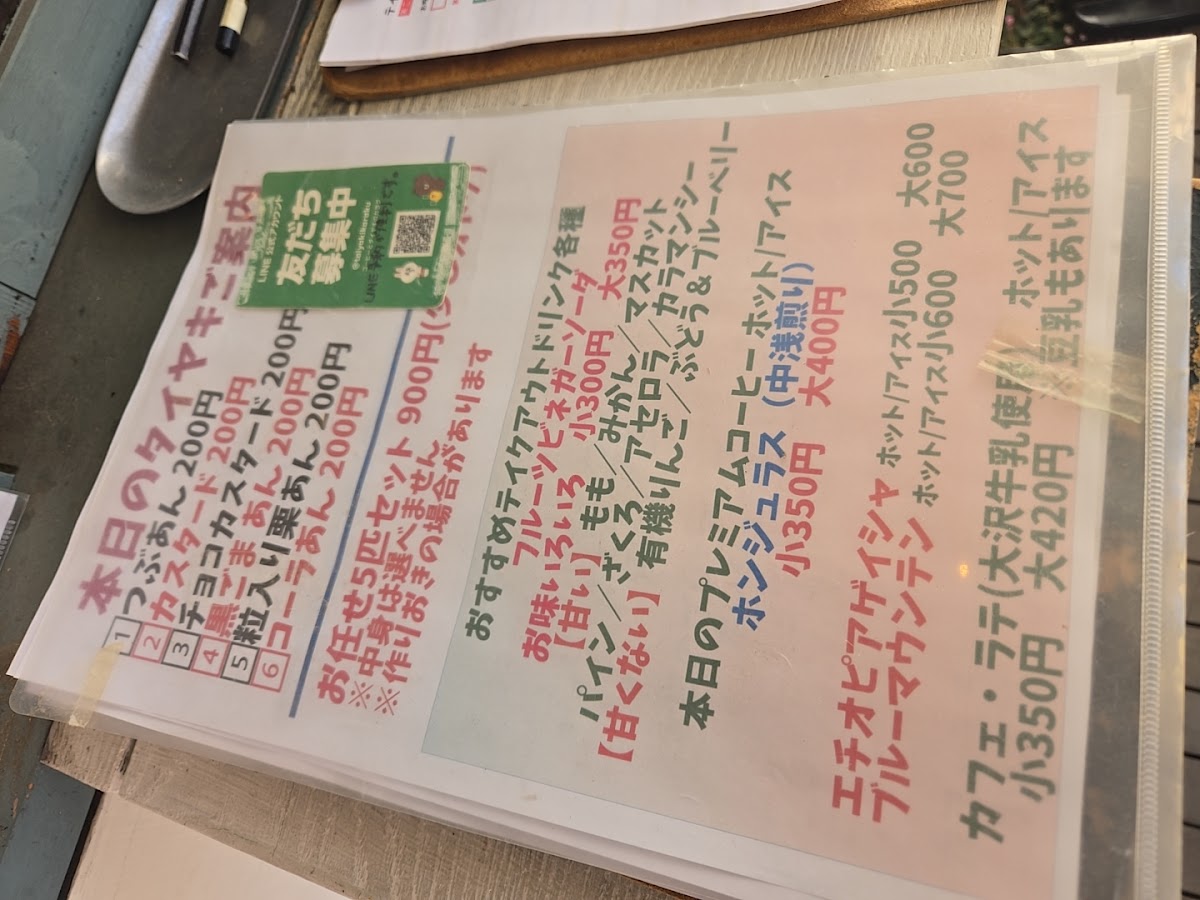 本日のタイヤキご案内
1 つぶあん 200円
2 カスタード 200円
3 チョコカスタード 200円
4 黒ごまあん 200円
5 粒入り栗あん 200円
6 コーラあん 200円
LINE 公式アカウント
友だち
募集中
お任せ5匹セット 900円
※中身は選べません
※作りおきの場合があります
おすすめテイクアウトドリンク各種
フルーツビネガーソーダ
お味いろいろ 小300円 大350円
【甘い】もも/みかん/マスカット
パイン/ざくろ/アセロラ/カラマンシー
【甘くない】有機りんご/ぶどう&ブルーベリー
本日のプレミアムコーヒー ホット/アイス
ホンジュラス (中浅煎り)
小350円 大400円
エチオピアゲイシャ ホット/アイス小500 大600
ブルーマウンテン ホット/アイス小600 大700
カフェ・ラテ(大沢牛乳使用 ホット/アイス
小350円 大420円 豆乳もあります